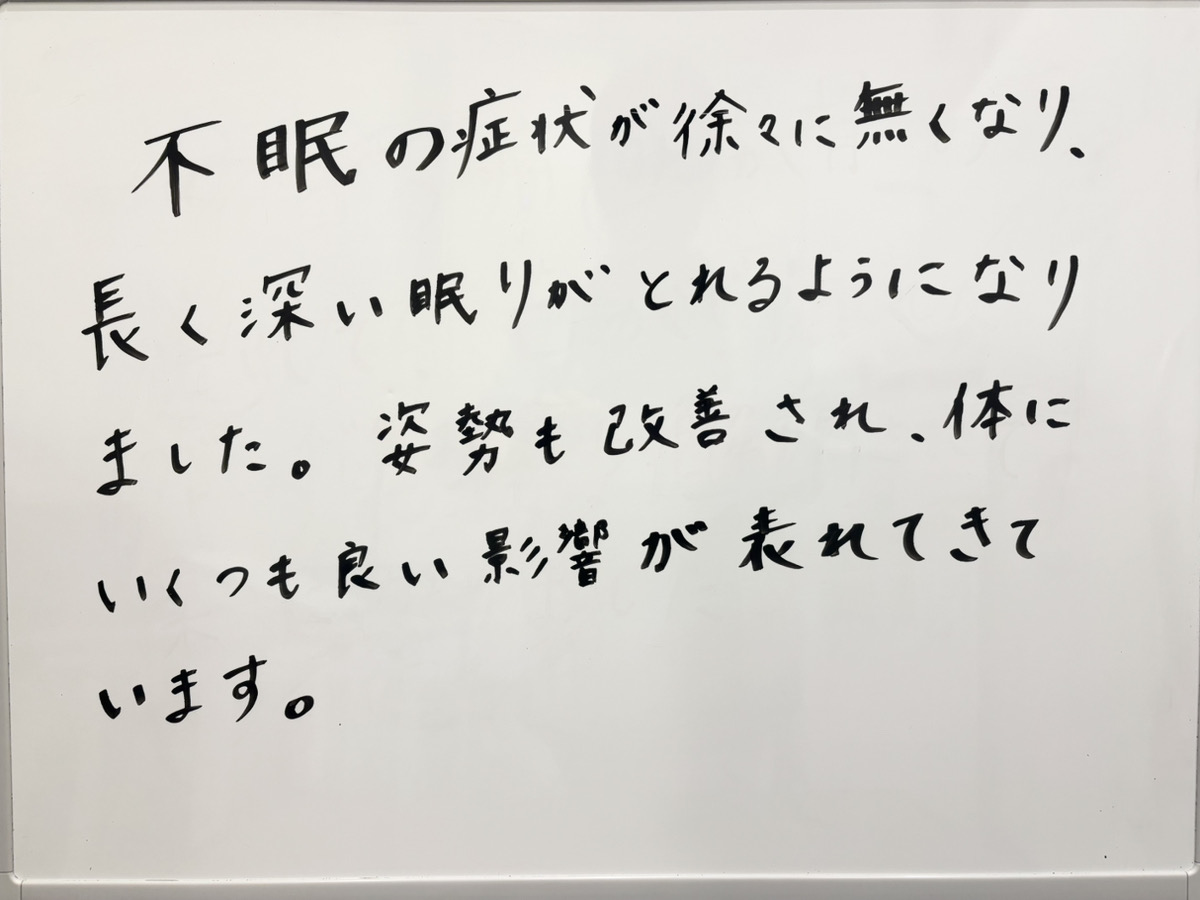 不眠の症状が徐々に無くなり、
長く深い眠りがとれるようになり
ました。姿勢も改善され、体に
いくつも良い影響が表れてきて
います。